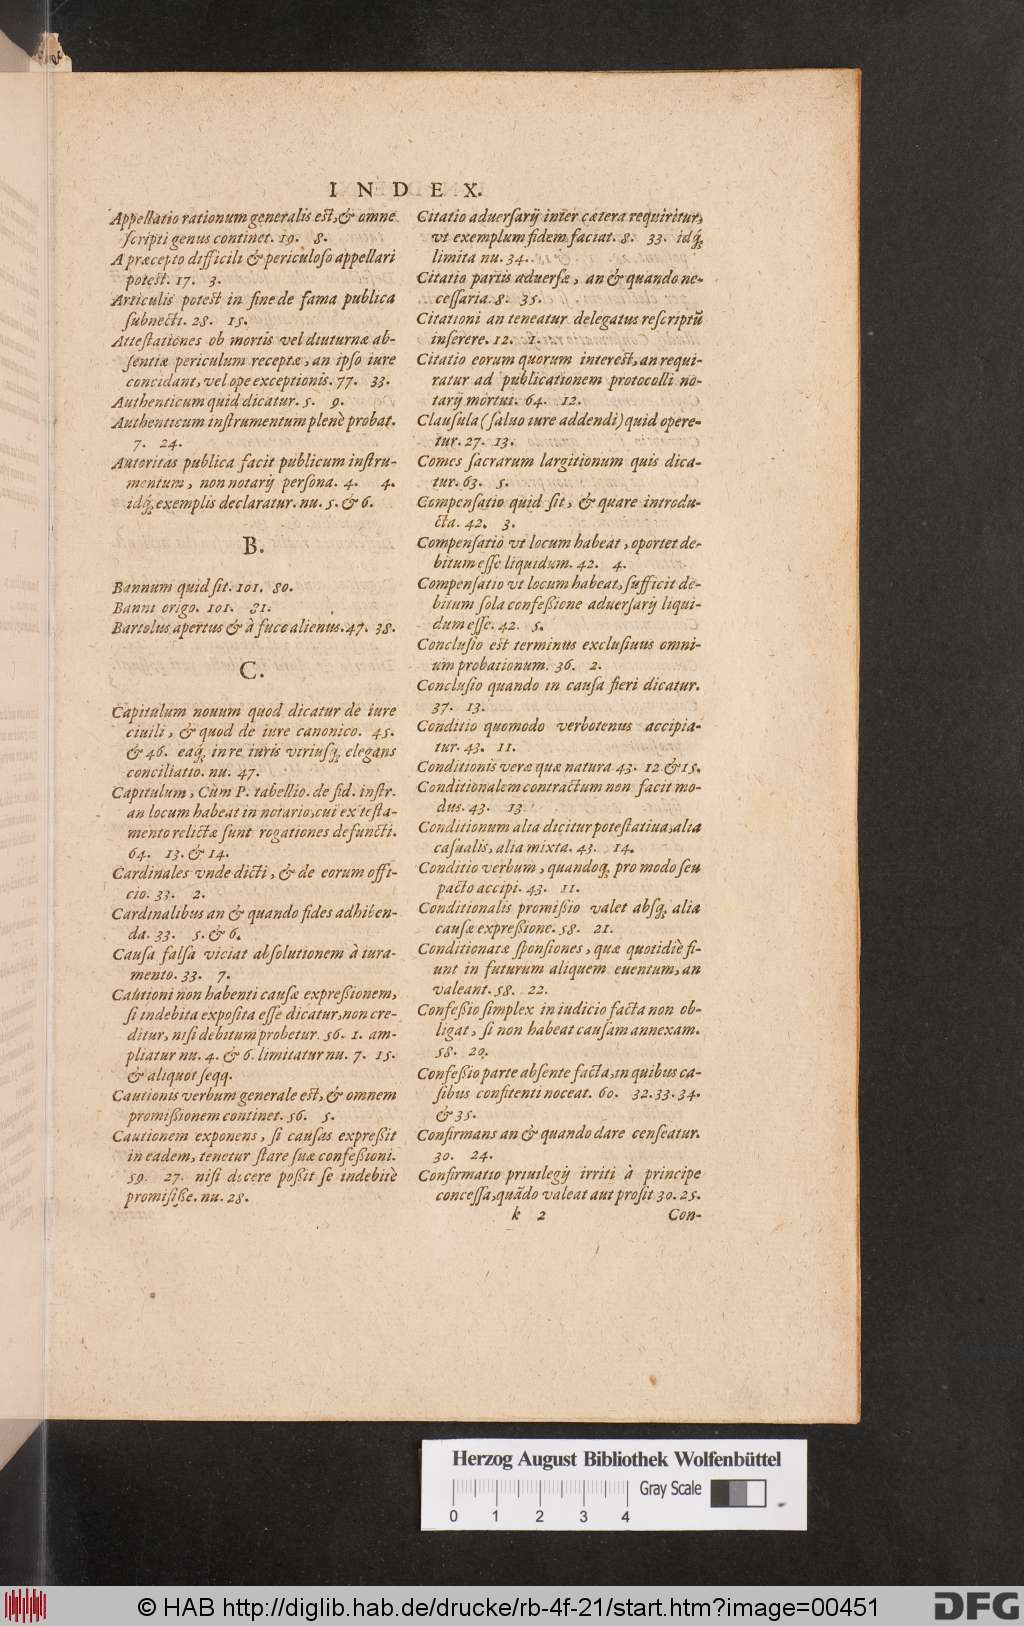 INDEX.
Appellatio rationum generalis est, & omne
scripti genus continet. 19. 8.
A præcepto difficili & periculoso appellari
potest. 17. 3.
Articulis potest in fine de fama publica
subnecti. 28. 15.
Attestationes ob mortis vel diuturnæ ab-
sentiæ periculum receptæ, an ipso iure
concidant, vel ope exceptionis. 77. 33.
Authenticum quid dicatur. 5. 9.
Authenticum instrumentum plenè probat.
7. 24.
Autoritas publica facit publicum instru-
mentum, non notarij persona. 4. 4.
idq́; exemplis declaratur. nu. 5. & 6.
B.
Bannum quid sit. 101. 80.
Banni origo. 101. 81.
Bartolus apertus & à fuco alienus. 47. 38.
C.
Capitulum nouum quod dicatur de iure
ciuili, & quod de iure canonico. 45.
& 46. eaq́; in re iuris vtriusq́; elegans
conciliatio. nu. 47.
Capitulum, Cùm P. tabellio. de fid. instr.
an locum habeat in notario, cui ex testa-
mento relictæ sunt rogationes defuncti.
64. 13. & 14.
Cardinales vnde dicti, & de eorum offi-
cio. 33. 2.
Cardinalibus an & quando fides adhiben-
da. 33. 5. & 6.
Causa falsa viciat absolutionem à iura-
mento. 33. 7.
Cautioni non habenti causæ expreßionem,
si indebita exposita esse dicatur, non cre-
ditur, nisi debitum probetur. 56. 1. am-
pliatur nu. 4. & 6. limitatur nu. 7. 15.
& aliquot seqq.
Cautionis verbum generale est, & omnem
promißionem continet. 56. 5.
Cautionem exponens, si causas expreßit
in eadem, tenetur stare suæ confeßioni.
59. 27. nisi docere poßit se indebitè
promisiße. nu. 28.
Citatio aduersarij inter cætera requiritur,
vt exemplum fidem faciat. 8. 33. idq́;
limita nu. 34.
Citatio partis aduersæ, an & quando ne-
cessaria. 8. 35.
Citationi an teneatur delegatus rescriptū
inserere. 12. 1.
Citatio eorum quorum interest, an requi-
ratur ad publicationem protocolli no-
tarij mortui. 64. 12.
Clausula (saluo iure addendi) quid opere-
tur. 27. 13.
Comes sacrarum largitionum quis dica-
tur. 63. 5.
Compensatio quid sit, & quare introdu-
cta. 42. 3.
Compensatio vt locum habeat, oportet de-
bitum esse liquidum. 42. 4.
Compensatio vt locum habeat, sufficit de-
bitum sola confeßione aduersarij liqui-
dum esse. 42. 5.
Conclusio est terminus exclusiuus omni-
um probationum. 36. 2.
Conclusio quando in causa fieri dicatur.
37. 13.
Conditio quomodo verbotenus accipia-
tur. 43. 11.
Conditionis veræ quæ natura 43. 12 & 15.
Conditionalem contractum non facit mo-
dus. 43. 13
Conditionum alia dicitur potestatiua, alia
casualis, alia mixta. 43. 14.
Conditio verbum, quandoq́; pro modo seu
pacto accipi. 43. 11.
Conditionalis promißio valet absq́; alia
causæ expreßione. 58. 21.
Conditionatæ sponsiones, quæ quotidiè fi-
unt in futurum aliquem euentum, an
valeant. 58. 22.
Confeßio simplex in iudicio facta non ob-
ligat, si non habeat causam annexam.
58. 20.
Confeßio parte absente facta, in quibus ca-
sibus confitenti noceat. 60. 32. 33. 34.
& 35.
Confirmans an & quando dare censeatur.
30. 24.
Confirmatio priuilegij irriti à principe
concessa, quādo valeat aut prosit 30. 25.
k 2 Con-
Herzog August Bibliothek Wolfenbüttel
Gray Scale
0 1 2 3 4
© HAB http://diglib.hab.de/drucke/rb-4f-21/start.htm?image=00451
DFG